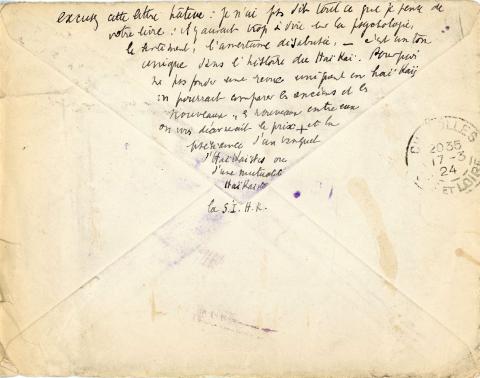 excusez cette lettre hâtive : je n'ai pas dit tout ce que je pense de
votre livre : il y aurait trop à dire sur la psychologie,
le sentiment, l'amertume distribuée, — c'est un ton
unique dans l'histoire du Haï Kaï. Pourquoi
ne pas fonder une revue uniquement haï-kaï,
on pourrait comparer les anciens et les
nouveaux, les nouveaux entre eux
on vous décernerait le prix + et la
présidence d'un banquet
d'Haïkaïstes ou
d'une mutuelle
Haïkaïste
la S.I.H.K.
2035
17-3
24
ET LOIRE